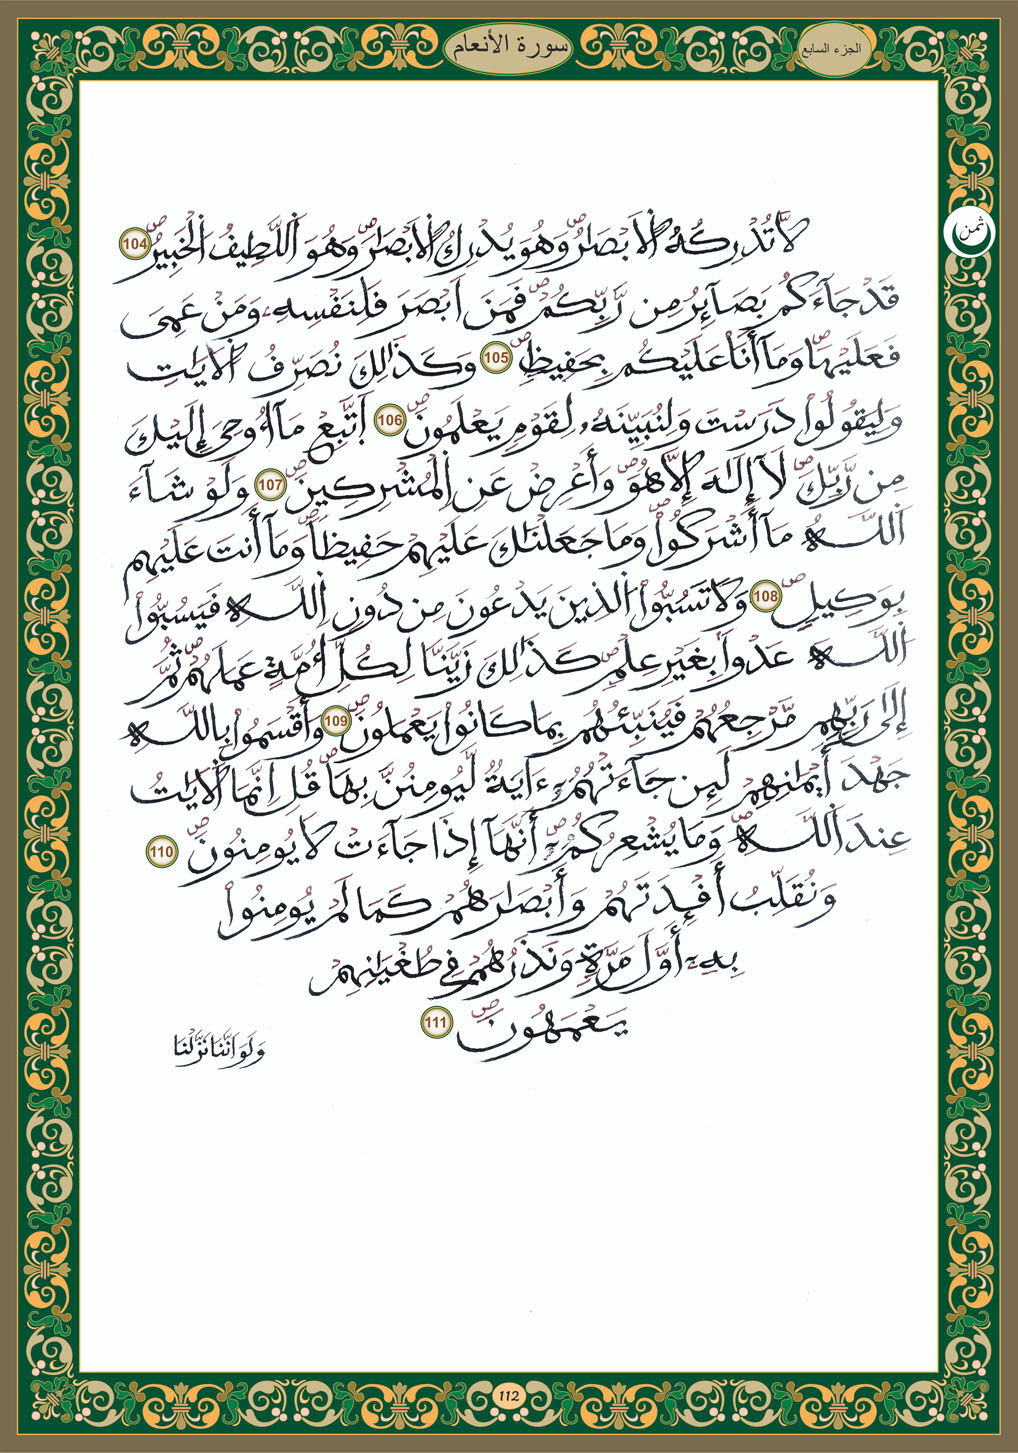 الجزء السابع
سورة الأنعام
ثمن
لَّا تُدْرِكُهُ اُلَابْصَٰرُ وَهُوَ يُدْرِكُ اُلَابْصَٰرَ وَهُوَ اَللَّطِيفُ اُلْخَبِيرُ 104
قَدْ جَآءَكُم بَصَآئِرُ مِن رَّبِّكُمْ فَمَنَ اَبْصَرَ فَلِنَفْسِهِۦ وَمَنْ عَمِىَ
فَعَلَيْهَا وَمَآ أَنَا۠ عَلَيْكُم بِحَفِيظٍ 105 وَكَذَٰلِكَ نُصَرِّفُ اُلَايَٰتِ
وَلِيَقُولُواْ دَرَسْتَ وَلِنُبَيِّنَهُۥ لِقَوْمٍ يَعْلَمُونَ 106 اَتَّبِعْ مَآ أُوحِىَ إِلَيْكَ
مِن رَّبِّكَ لَآ إِلَٰهَ إِلَّا هُوَ وَأَعْرِضْ عَنِ اِلْمُشْرِكِينَ 107 وَلَوْ شَآءَ
اَللَّهُ مَآ أَشْرَكُواْ وَمَا جَعَلْنَٰكَ عَلَيْهِمْ حَفِيظاً وَمَآ أَنتَ عَلَيْهِم
بِوَكِيلٍ 108 وَلَا تَسُبُّواْ اُلذِينَ يَدْعُونَ مِن دُونِ اِللَّهِ فَيَسُبُّواْ
اُللَّهَ عَدْواَۢ بِغَيْرِ عِلْمٍ كَذَٰلِكَ زَيَّنَّا لِكُلِّ أُمَّةٍ عَمَلَهُمْ ثُمَّ
إِلَىٰ رَبِّهِم مَّرْجِعُهُمْ فَيُنَبِّئُهُم بِمَا كَانُواْ يَعْمَلُونَ 109 وَأَقْسَمُواْ بِاللَّهِ
جَهْدَ أَيْمَٰنِهِمْ لَئِن جَآءَتْهُمُۥٓ ءَايَةٌ لَّيُومِنُنَّ بِهَا قُلِ اِنَّمَا اَلَايَٰتُ
عِندَ اَللَّهِ وَمَا يُشْعِرُكُمُۥٓ أَنَّهَآ إِذَا جَآءَتْ لَا يُومِنُونَ 110
وَنُقَلِّبُ أَفْـِٕدَتَهُمْ وَأَبْصَٰرَهُمْ كَمَا لَمْ يُومِنُواْ
بِهِۦٓ أَوَّلَ مَرَّةٍ وَنَذَرُهُمْ فِى طُغْيَٰنِهِمْ
يَعْمَهُونَ 111
وَلَوَ اَنَّنَا نَزَّلْنَا
112